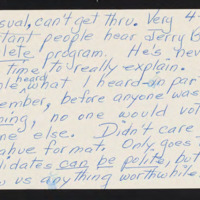 sual, can't get thru. Very 4-
tant people hear Jerry B
lete program. He's nev
time to really explain.
le heard what I heard in par
ember, before anyone was
ping, no one would vot
ne else. Didn't care
ahue format. Only goes
didates can be polite, but
us anything worthwhile